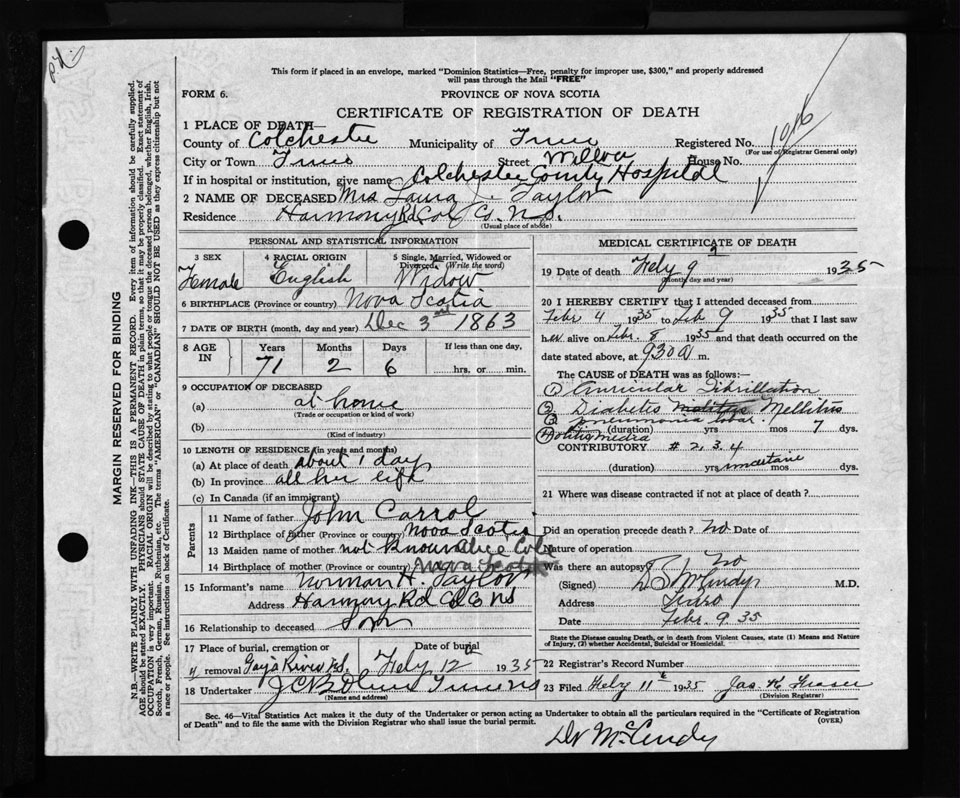 This form if placed in an envelope, marked "Dominion Statistics—Free, penalty for improper use, $300," and properly addressed
will pass through the Mail "FREE"
FORM 6.
PROVINCE OF NOVA SCOTIA
CERTIFICATE OF REGISTRATION OF DEATH
1 PLACE OF DEATH—
County of Colchester Municipality of Truro Registered No. 1016
(For use of Registrar General only)
City or Town Truro Street Willow House No.
If in hospital or institution, give name Colchester County Hospital
2 NAME OF DECEASED Mrs Laura J. Taylor
Residence Harmony Rd Col Co. N.S.
(Usual place of abode)
PERSONAL AND STATISTICAL INFORMATION
3 SEX Female
4 RACIAL ORIGIN English
5 Single, Married, Widowed or Divorced (Write the word) Widow
6 BIRTHPLACE (Province or country) Nova Scotia
7 DATE OF BIRTH (month, day and year) Dec 3rd 1863
8 AGE IN Years Months Days If less than one day,
71 2 6 hrs. or min.
9 OCCUPATION OF DECEASED
(a) at home
(Trade or occupation or kind of work)
(b)
(Kind of industry)
10 LENGTH OF RESIDENCE (in years and months)
(a) At place of death about 1 day
(b) In province all her life
(c) In Canada (if an immigrant)
Parents
11 Name of father John Carrol
12 Birthplace of father (Province or country) Nova Scotia
13 Maiden name of mother not known
14 Birthplace of mother (Province or country) Nova Scotia
15 Informant's name Norman H. Taylor
Address Harmony Rd Col Co NS
16 Relationship to deceased Son
17 Place of burial, cremation or removal Gays River Rd. Date of burial Feby 12th 1935
18 Undertaker Truro NS
(Name and address)
MEDICAL CERTIFICATE OF DEATH
19 Date of death Feby 9 1935
(month, day and year)
20 I HEREBY CERTIFY that I attended deceased from
Febr 4 1935 to Feb 9 1935 that I last saw
her alive on Febr. 8 1935 and that death occurred on the
date stated above, at 930 a m.
The CAUSE of DEATH was as follows:—
(1) Auricular Fibrillation
(2) Diabetes Mellitus
(3) pneumonia lobar.
(duration) yrs mos 7 dys.
(4) Otitis media
CONTRIBUTORY # 2, 3, 4
(duration) yrs mos dys.
21 Where was disease contracted if not at place of death?
Did an operation precede death? no Date of
Nature of operation
Was there an autopsy? no
(Signed) M.D.
Address Truro
Date Febr. 9 35
State the Disease causing Death, or in death from Violent Causes, state (1) Means and Nature
of Injury, (2) whether Accidental, Suicidal or Homicidal.
22 Registrar's Record Number
23 Filed Feby 11th 1935 Jas. K. Fraser
(Division Registrar)
Sec. 46—Vital Statistics Act makes it the duty of the Undertaker or person acting as Undertaker to obtain all the particulars required in the "Certificate of Registration
of Death" and to file the same with the Division Registrar who shall issue the burial permit. (OVER)
MARGIN RESERVED FOR BINDING
N.B.—WRITE PLAINLY WITH UNFADING INK—THIS IS A PERMANENT RECORD. Every item of information should be carefully supplied.
AGE should be stated EXACTLY. PHYSICIANS should STATE CAUSE OF DEATH in plain terms, so that it may be properly classified. Exact statement of
OCCUPATION is very important. RACIAL ORIGIN will be described by stating to what people or tongue the deceased person belonged, whether English, Irish,
Scotch, French, German, Russian, Ruthenian, etc. The terms "AMERICAN" or "CANADIAN" SHOULD NOT BE USED as they express citizenship but not
a race or people. See instructions on back of Certificate.